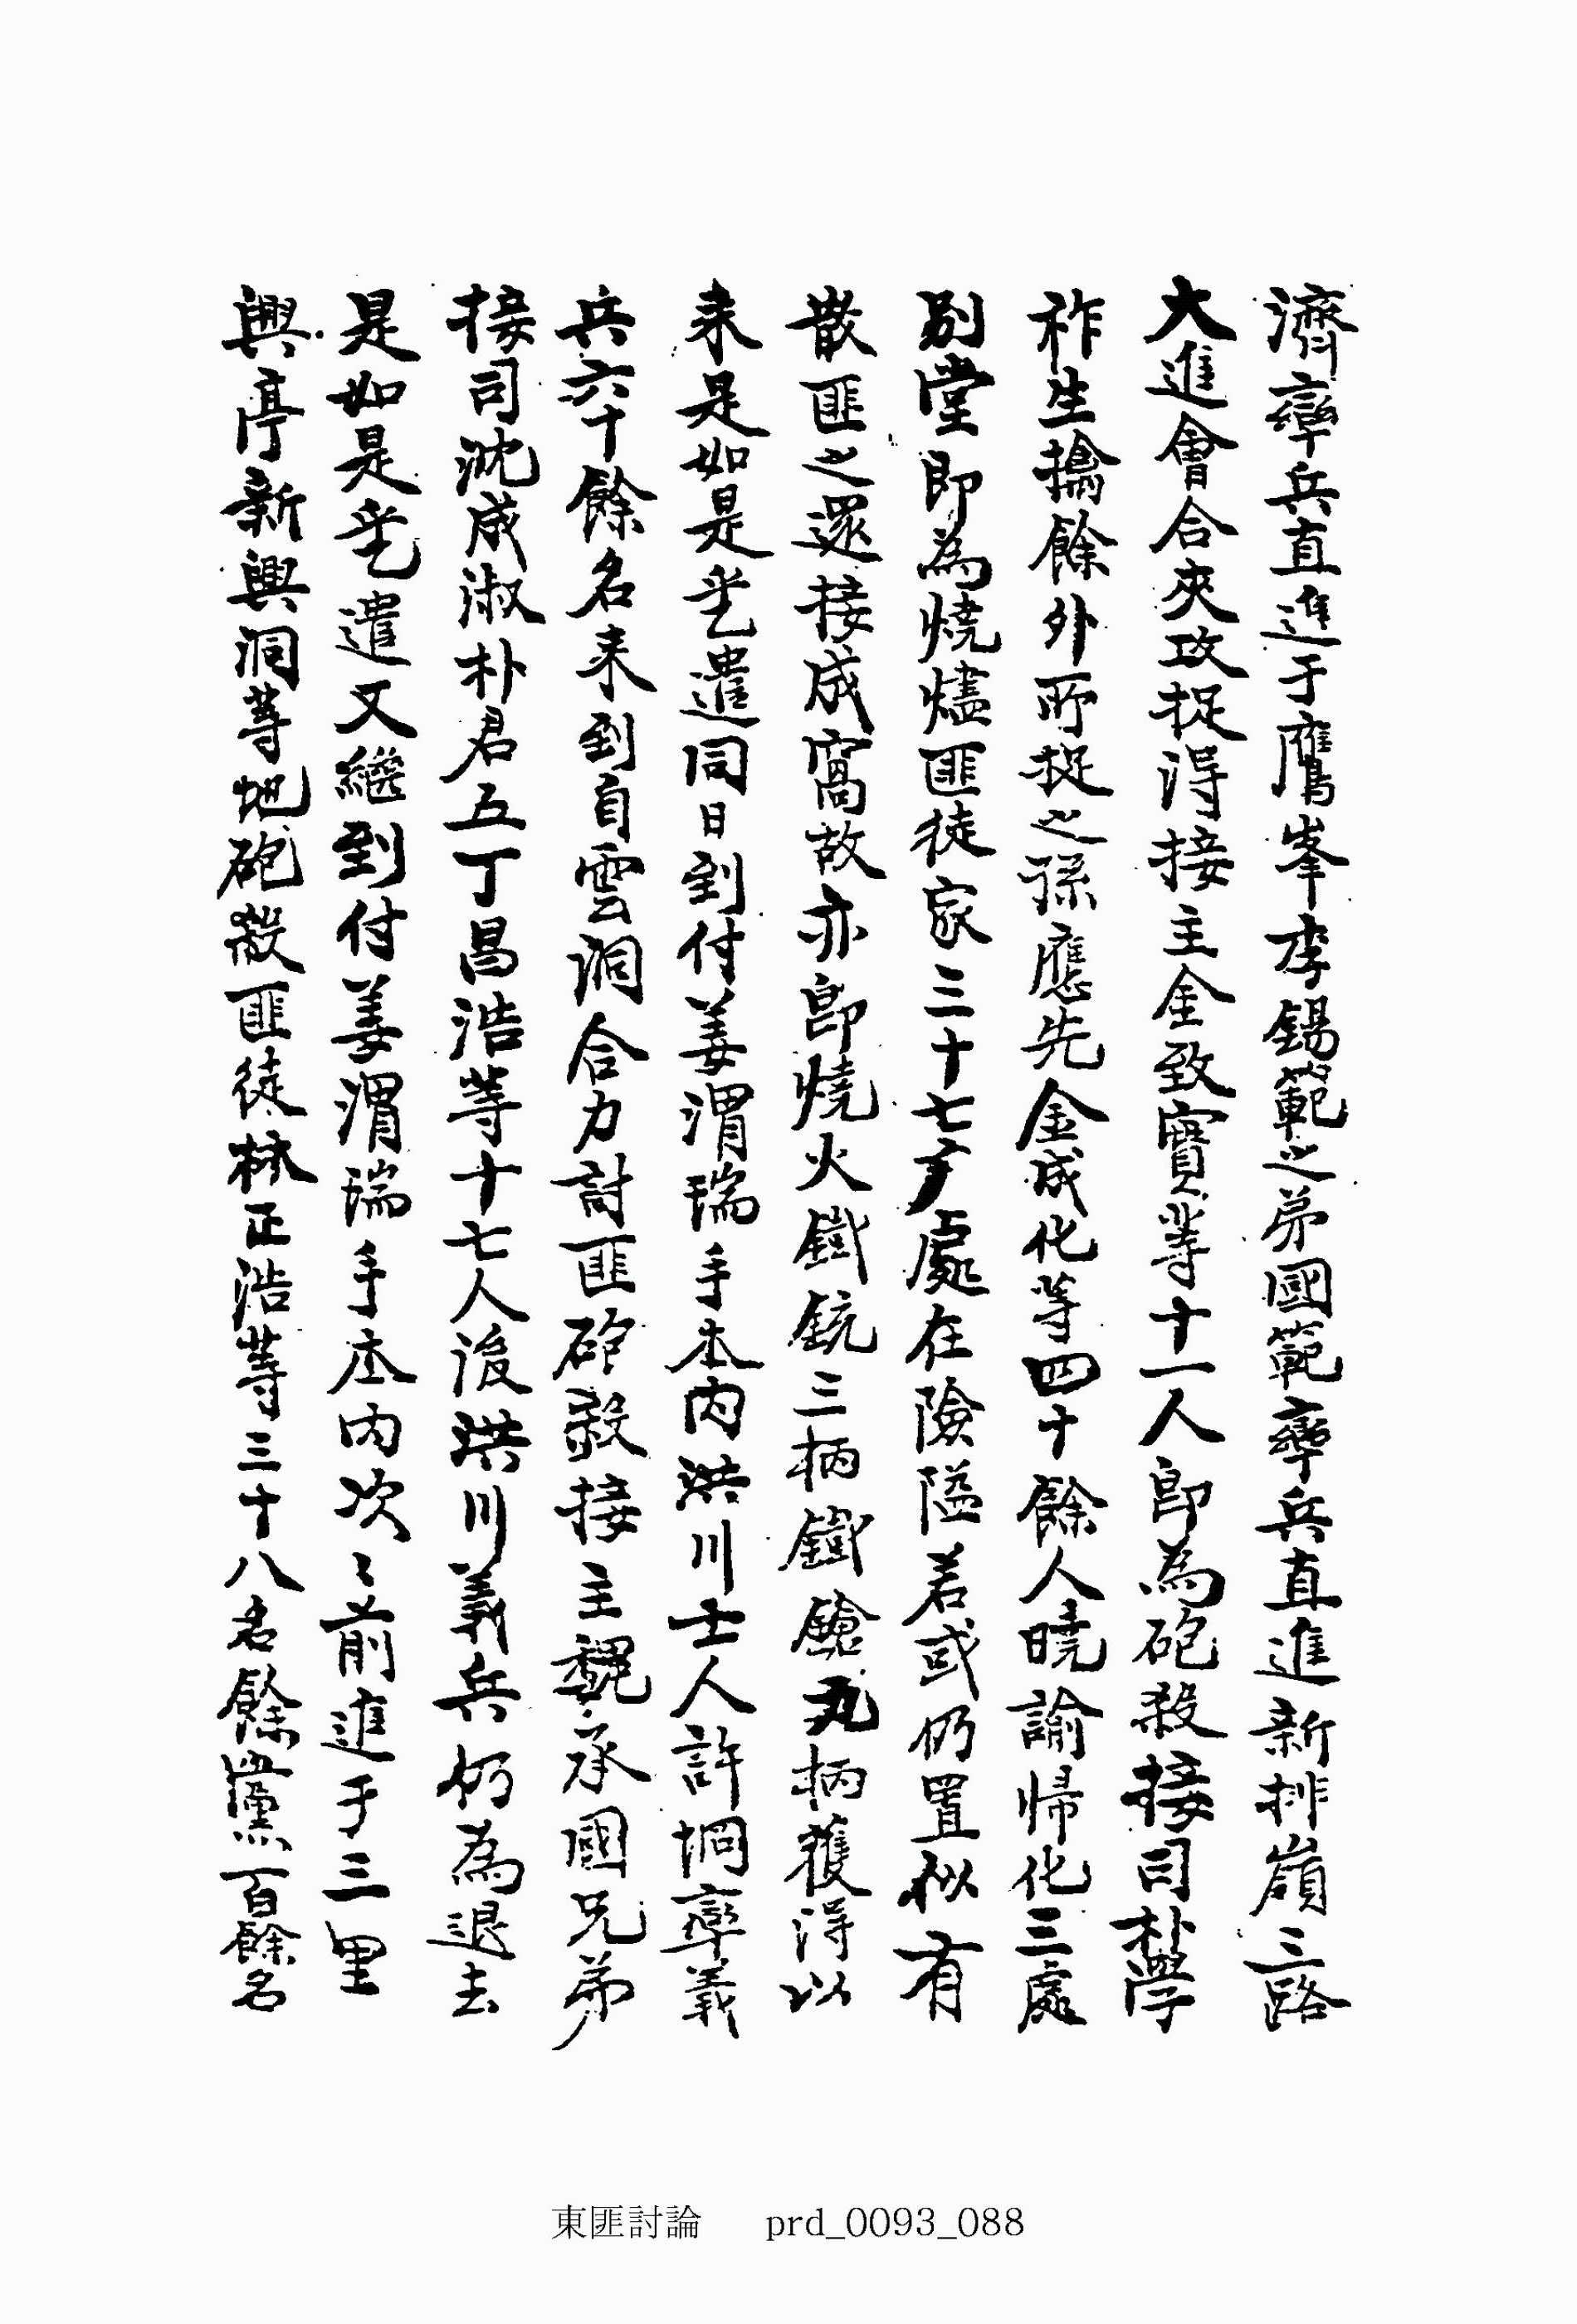 濟率兵直進于鷹峯李錫範之弟國範率兵直進新排嶺三路
大進會合夾攻捉得接主金致實等十一人卽爲砲殺接司朴學
祚生擒餘外所捉之孫應先金成化等四十餘人曉諭帰化三處
別堂卽爲燒燼匪徒家三十七處在險隘若或仍置似有
散匪之還接成窩故亦卽燒火鐵銃三柄鐵鎗九柄獲得以
来是如是乎遣同日到付姜渭瑞手本內洪川士人許坰率義
兵六十餘名来到自雲洞合力討匪砲殺接主魏承國兄弟
接司沈成淑朴君五丁昌浩等十七人後洪川義兵仍爲退去
是如是乎遣又繼到付姜渭瑞手本內次〻前進于三里
興亭新興洞等地砲殺匪徒林正浩等三十八名餘黨百餘名
東匪討論 prd_0093_088